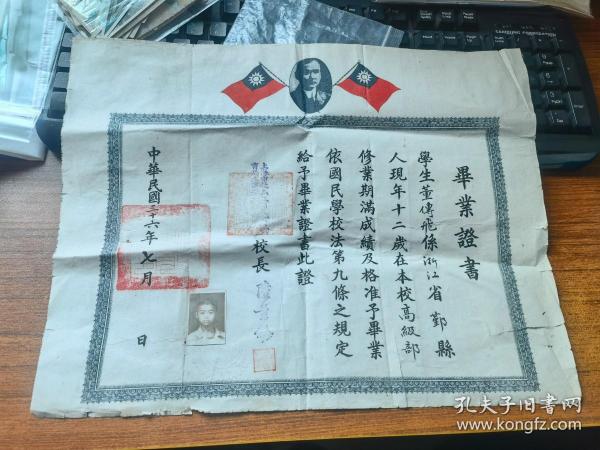 畢業證書
學生董傳飛係浙江省鄞縣
人現年十二歲在本校高級部
修業期滿成績及格准予畢業
依國民學校法第九條之規定
給予畢業證書此證
校長
中華民國三十六年七月 日
孔夫子旧书网
www.kongfz.com